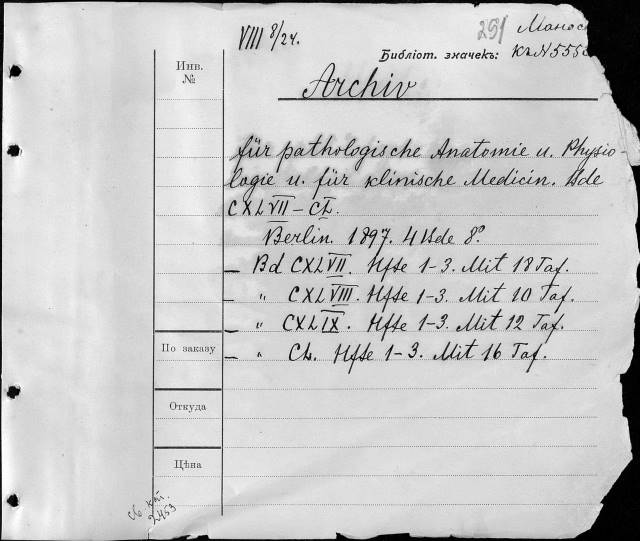 VIII 8/24.
291
Библіот. значекъ:
Инв.
№
Archiv
für pathologische Anatomie u. Physio-
logie u. für klinische Medicin. Bde
CXLVII–CL.
Berlin. 1897. 4 Bde 8°.
— Bd CXLVII. Hfte 1–3. Mit 18 Taf.
— " CXLVIII. Hfte 1–3. Mit 10 Taf.
— " CXLIX. Hfte 1–3. Mit 12 Taf.
— " CL. Hfte 1–3. Mit 16 Taf.
По заказу
Откуда
Цѣна
2453